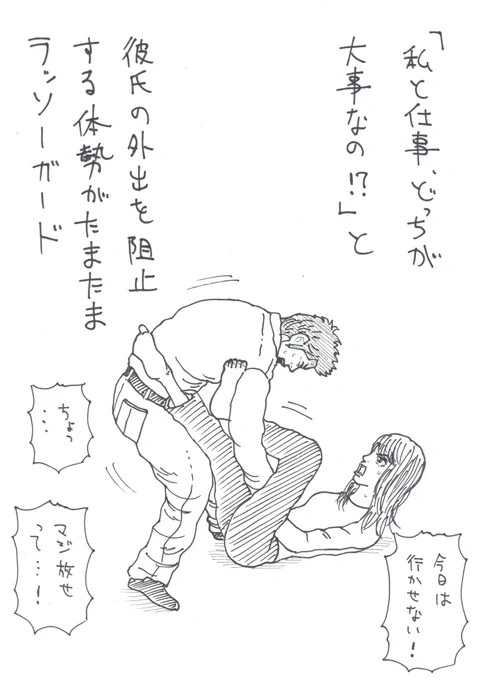 「私と仕事、どっちが
大事なの!?」と
彼氏の外出を阻止
する体勢がたまたま
ラッソーガード
今日は
行かせない!
ちょっ
…
マジ放せ
って…!